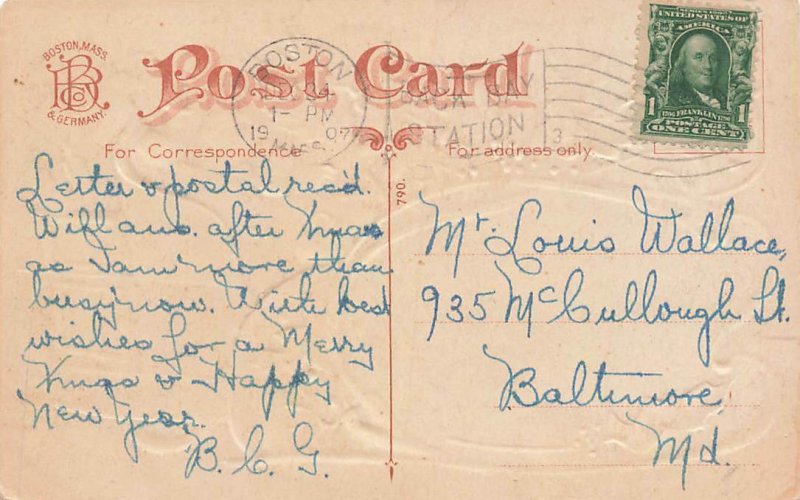 BOSTON, MASS.
BR Co
& GERMANY.
Post Card
For Correspondence
For address only.
790.
BOSTON
1- PM
19 07
MASS.
BACK BAY
STATION
3
SERIES 1902
UNITED STATES OF
AMERICA
1790 FRANKLIN 1790
1 POSTAGE 1
ONE CENT
Letter & postal rec'd.
Will ans. after Xmas
as I am "more than
busy" now. With best
wishes for a Merry
Xmas & Happy
New Year.
B. C. G.
Mr. Louis Wallace,
935 McCullough St.
Baltimore,
Md.